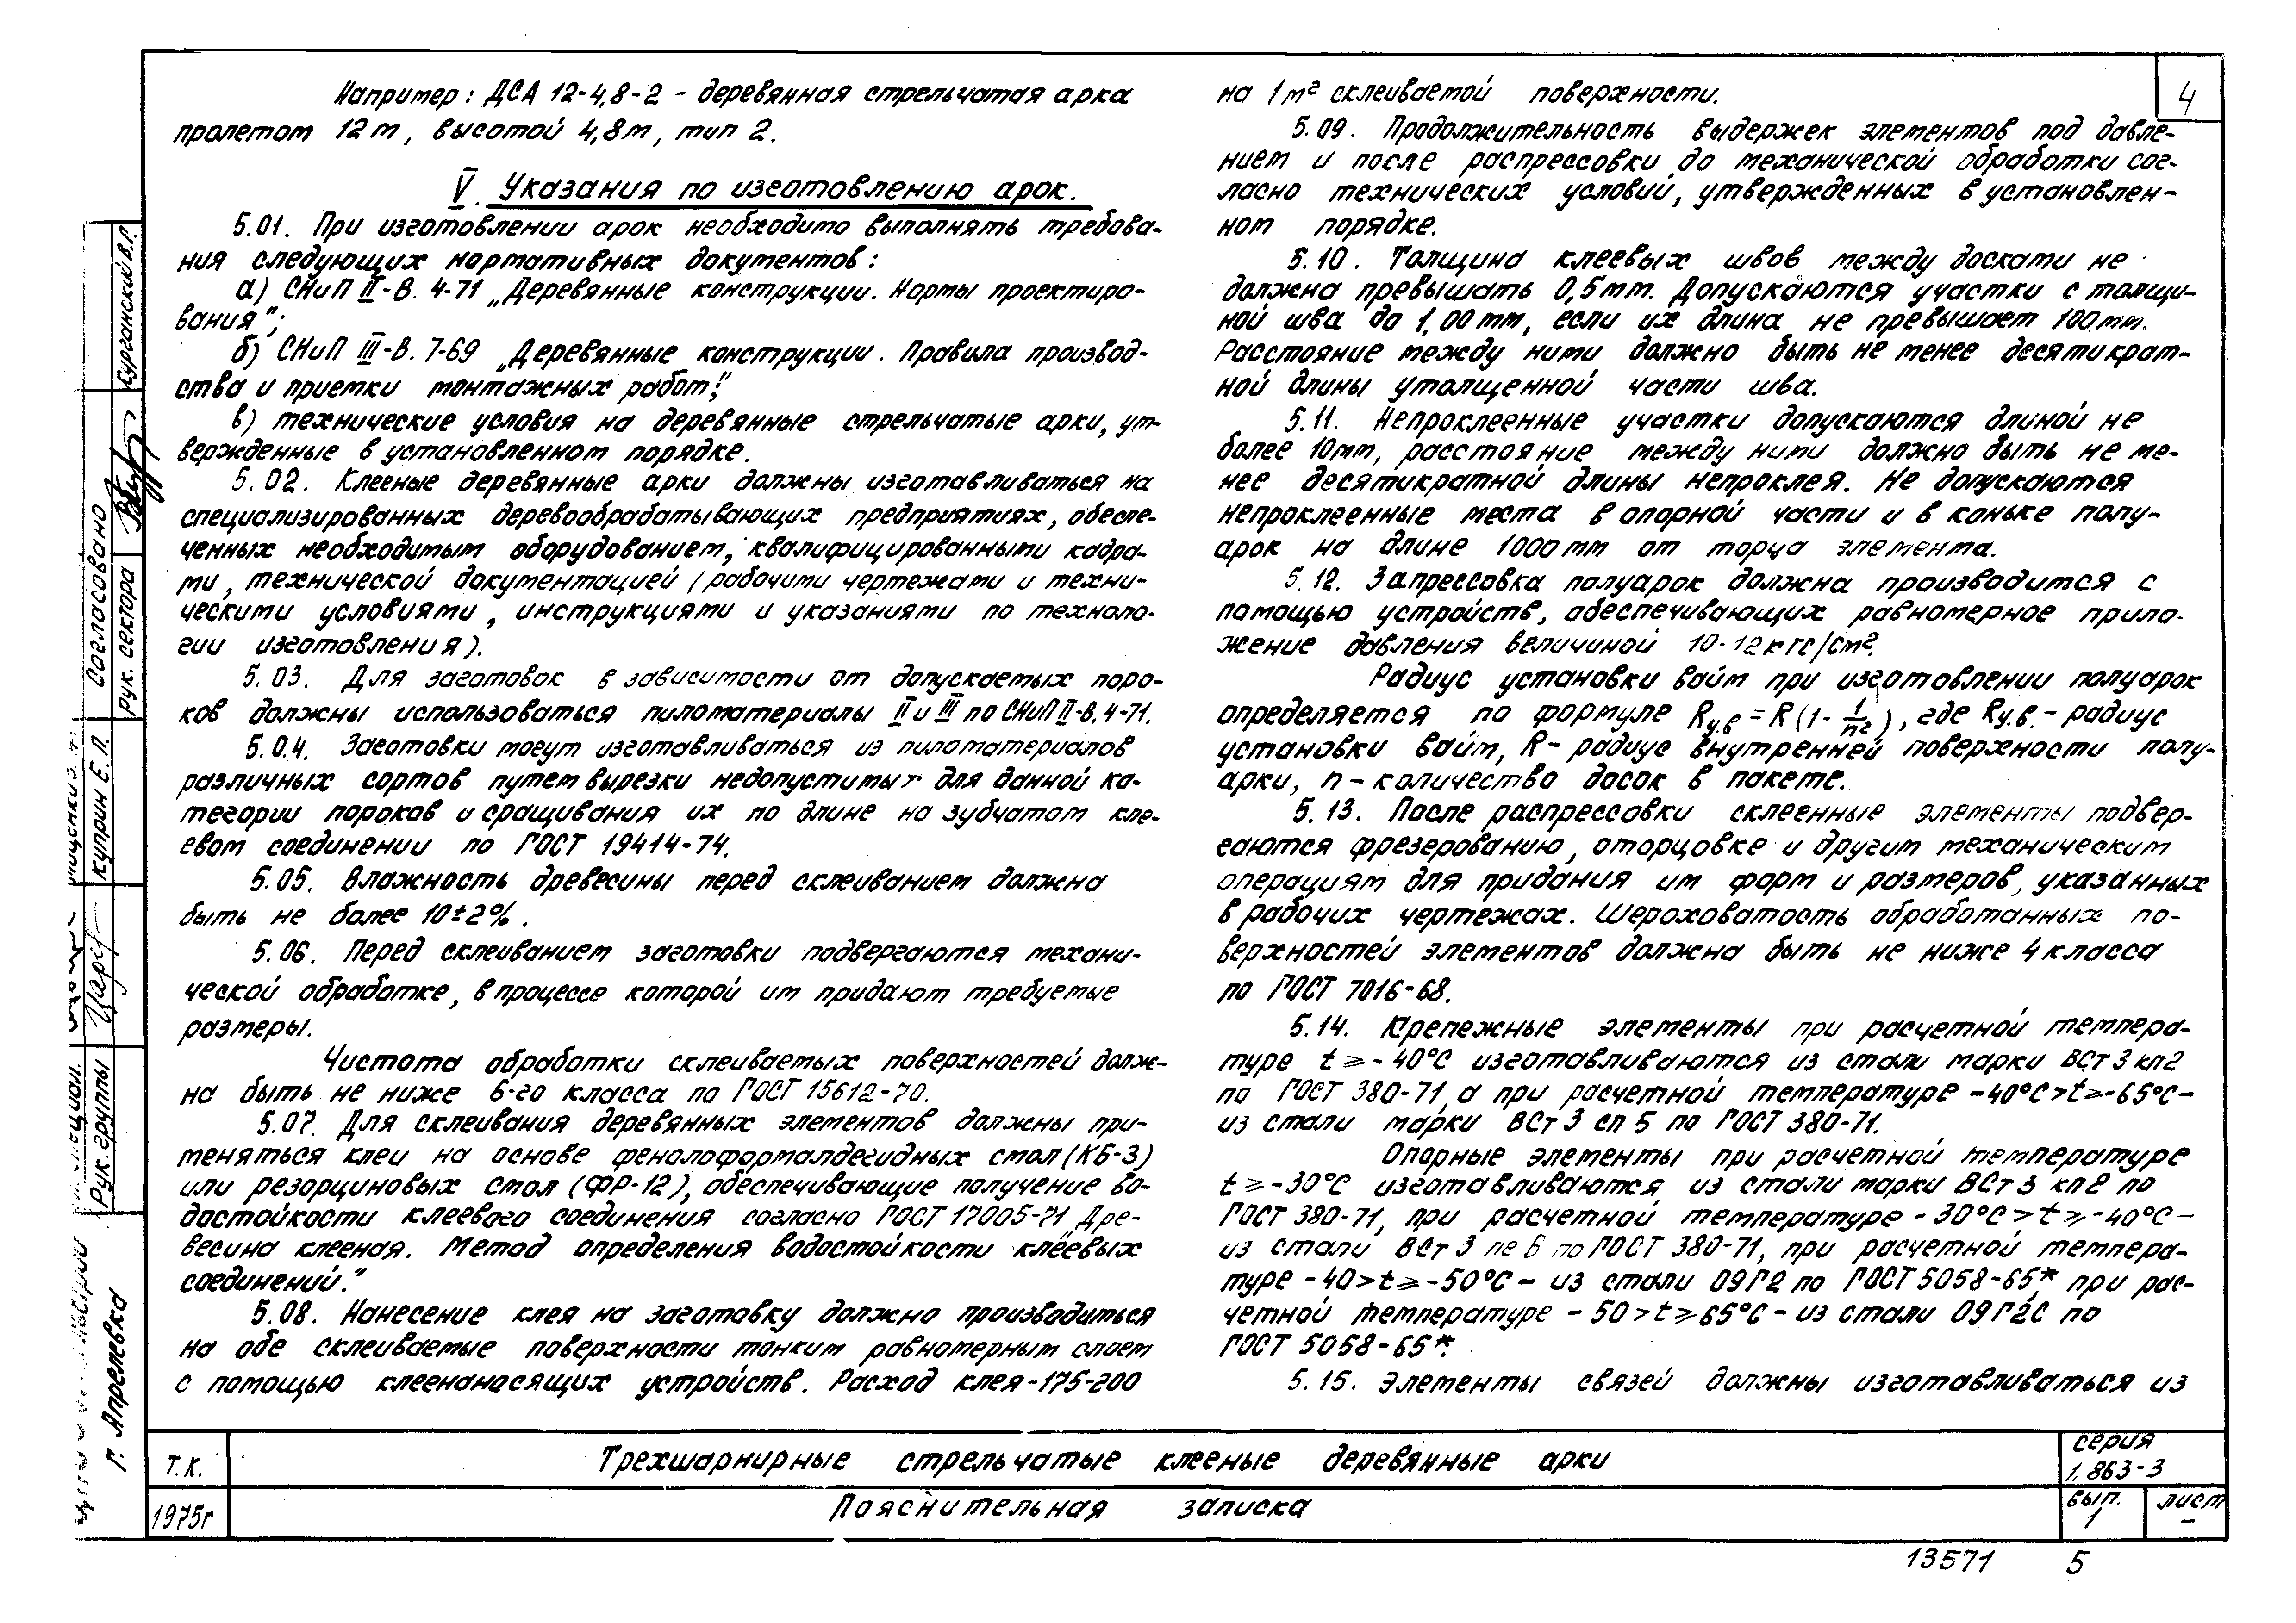 4
Например: ДСА 12-4,8-2 - деревянная стрельчатая арка
пролетом 12 м, высотой 4,8 м, тип 2.
V. Указания по изготовлению арок.
5.01. При изготовлении арок необходимо выполнять требова-
ния следующих нормативных документов:
а) СНиП II-В. 4-71 „Деревянные конструкции. Нормы проектиро-
вания";
б) СНиП III-В. 7-69 „Деревянные конструкции. Правила производ-
ства и приемки монтажных работ";
в) технические условия на деревянные стрельчатые арки, ут-
вержденные в установленном порядке.
5.02. Клееные деревянные арки должны изготавливаться на
специализированных деревообрабатывающих предприятиях, обеспе-
ченных необходимым оборудованием, квалифицированными кадра-
ми, технической документацией (рабочими чертежами и техни-
ческими условиями, инструкциями и указаниями по техноло-
гии изготовления).
5.03. Для заготовок в зависимости от допускаемых поро-
ков должны использоваться пиломатериалы II и III по СНиП II-В. 4-71.
5.04. Заготовки могут изготавливаться из пиломатериалов
различных сортов путем вырезки недопустимых для данной ка-
тегории пороков и сращивания их по длине на зубчатом кле-
евом соединении по ГОСТ 19414-74.
5.05. Влажность древесины перед склеиванием должна
быть не более 10±2%.
5.06. Перед склеиванием заготовки подвергаются механи-
ческой обработке, в процессе которой им придают требуемые
размеры.
Чистота обработки склеиваемых поверхностей долж-
на быть не ниже 6-го класса по ГОСТ 15612-70.
5.07. Для склеивания деревянных элементов должны при-
меняться клеи на основе фенолоформалдегидных смол (КБ-3)
или резорциновых смол (ФР-12), обеспечивающие получение во-
достойкости клеевого соединения согласно ГОСТ 17005-71 „Дре-
весина клееная. Метод определения водостойкости клеевых
соединений."
5.08. Нанесение клея на заготовку должно производиться
на обе склеиваемые поверхности тонким равномерным слоем
с помощью клеенаносящих устройств. Расход клея-175-200
на 1 м² склеиваемой поверхности.
5.09. Продолжительность выдержек элементов под давле-
нием и после распрессовки до механической обработки сог-
ласно технических условий, утвержденных в установлен-
ном порядке.
5.10. Толщина клеевых швов между досками не
должна превышать 0,5 мм. Допускаются участки с толщи-
ной шва до 1,00 мм, если их длина не превышает 100 мм.
Расстояние между ними должно быть не менее десятикрат-
ной длины утолщенной части шва.
5.11. Непроклеенные участки допускаются длиной не
более 10 мм, расстояние между ними должно быть не ме-
нее десятикратной длины непроклея. Не допускаются
непроклеенные места в опорной части и в коньке полу-
арок на длине 1000 мм от торца элемента.
5.12. Запрессовка полуарок должна производится с
помощью устройств, обеспечивающих равномерное прило-
жение давления величиной 10-12 кгс/см².
Радиус установки вайм при изготовлении полуарок
определяется по формуле Rу.в = R (1 - 1/n²), где Rу.в. - радиус
установки вайм, R - радиус внутренней поверхности полу-
арки, n - количество досок в пакете.
5.13. После распрессовки склеенные элементы подвер-
гаются фрезерованию, оторцовке и другим механическим
операциям для придания им форм и размеров, указанных
в рабочих чертежах. Шероховатость обработанных по-
верхностей элементов должна быть не ниже 4 класса
по ГОСТ 7016-68.
5.14. Крепежные элементы при расчетной темпера-
туре t ≥ -40°С изготавливаются из стали марки ВСт 3 кп 2
по ГОСТ 380-71, а при расчетной температуре -40°С > t ≥ -65°С -
из стали марки ВСт 3 сп 5 по ГОСТ 380-71.
Опорные элементы при расчетной температуре
t ≥ -30°С изготавливаются из стали марки ВСт 3 кп 2 по
ГОСТ 380-71, при расчетной температуре -30°С > t ≥ -40°С -
из стали ВСт 3 пс 6 по ГОСТ 380-71, при расчетной темпера-
туре -40 > t ≥ -50°С - из стали 09Г2 по ГОСТ 5058-65*, при рас-
четной температуре -50 > t ≥ 65°С - из стали 09Г2С по
ГОСТ 5058-65*.
5.15. Элементы связей должны изготавливаться из
Согласовано
Рук. сектора
Курганский В.Г.
Куприн Е.П.
Рук. группы
г. Апрелевка
Т.К.
1975г
Трехшарнирные стрельчатые клееные деревянные арки
Пояснительная записка
серия
1.863-3
вып.
1
лист
–
13571 5